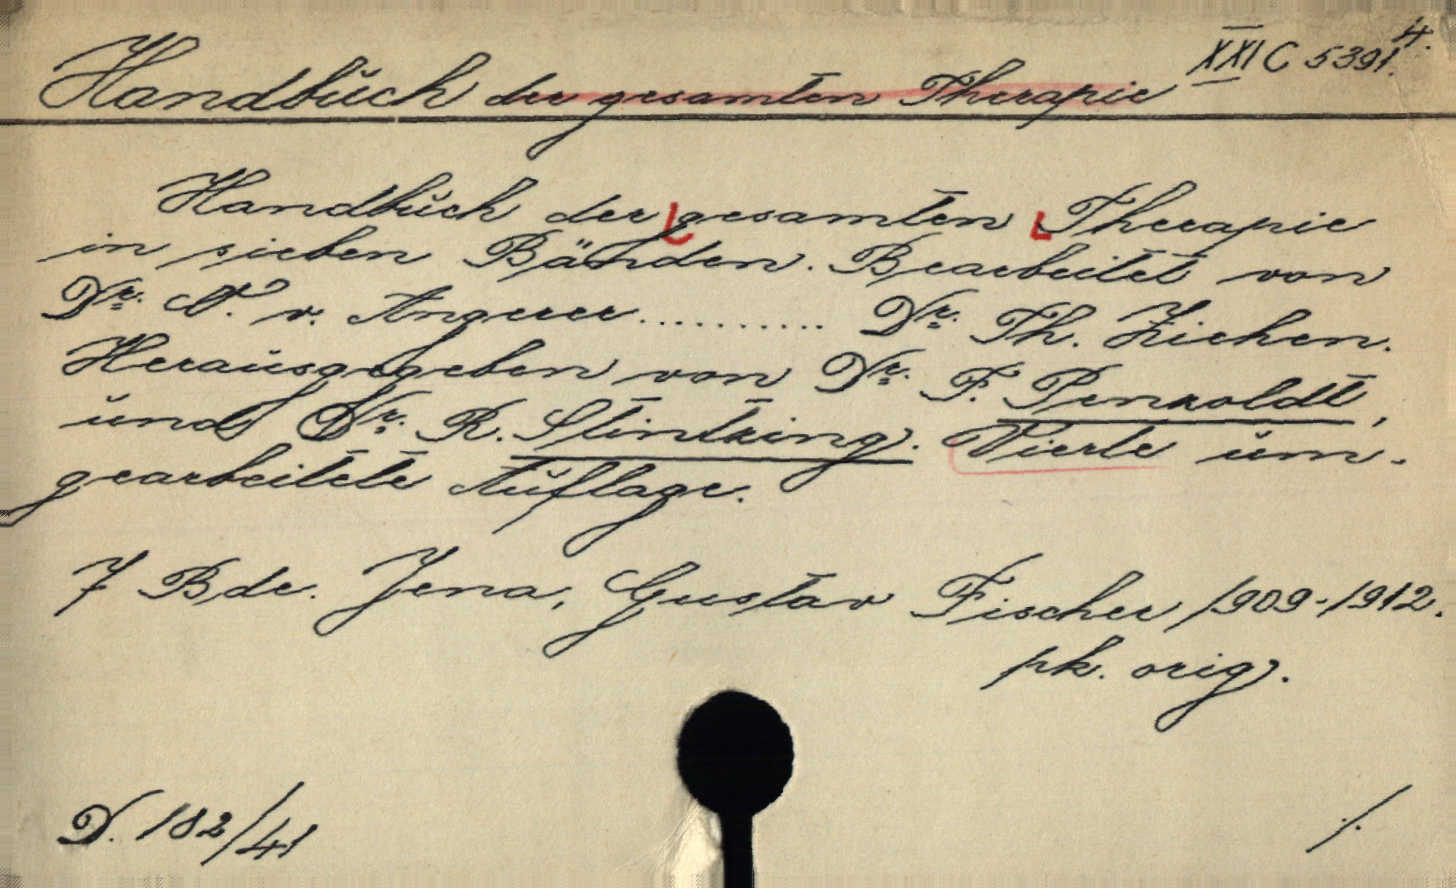 XXI C 5391. 4.
Handbuch der gesamten Therapie
Handbuch der gesamten Therapie
in sieben Bänden. Bearbeitet von
Dr. O. v. Angerer........... Dr. Th. Ziehen.
Herausgegeben von Dr. F. Penzoldt,
und Dr. R. Stintzing. Vierte um-
gearbeitete Auflage.
7 Bde. Jena, Gustav Fischer 1909-1912.
pk. orig.
D. 182/41